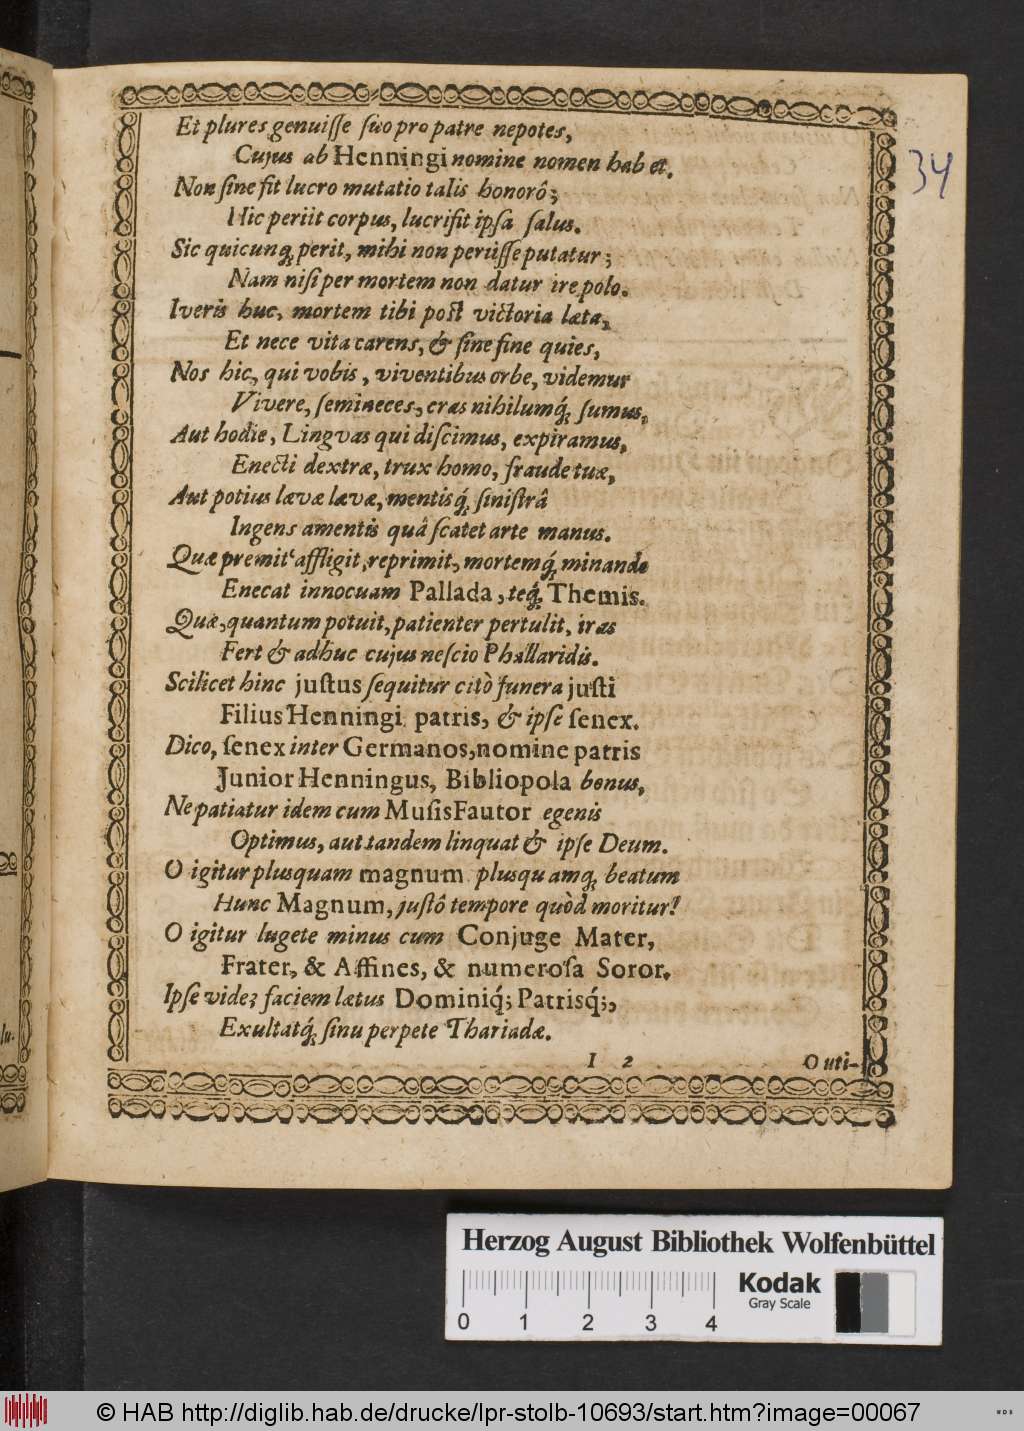 34
Et plures genuiſſe ſuo pro patre nepotes,
Cujus ab Henningi nomine nomen habet.
Non ſine fit lucro mutatio talis honorô;
Hic periit corpus, lucrifit ipſa ſalus.
Sic quicunq́; perit, mihi non periiſſe putatur;
Nam niſi per mortem non datur ire polo.
Iveris huc, mortem tibi poſt victoria læta,
Et nece vita carens, & ſine fine quies,
Nos hic, qui vobis, viventibus orbe, videmur
Vivere, ſemineces, cras nihilumq́; ſumus,
Aut hodie, Lingvas qui diſcimus, expiramus,
Enecti dextræ, trux homo, fraude tuæ,
Aut potius lævæ lævæ, mentisq́; ſiniſtrâ
Ingens amentis quâ ſcatet arte manus.
Quæ premit, affligit, reprimit, mortemq́; minando
Enecat innocuam Pallada, teq́; Themis.
Quæ, quantum potuit, patienter pertulit, iras
Fert & adhuc cujus neſcio Phallaridis.
Scilicet hinc juſtus ſequitur citò funera juſti
Filius Henningi patris, & ipſe ſenex.
Dico, ſenex inter Germanos, nomine patris
Junior Henningus, Bibliopola bonus,
Ne patiatur idem cum Muſis Fautor egenis
Optimus, aut tandem linquat & ipſe Deum.
O igitur plusquam magnum plusquamq́; beatum
Hunc Magnum, juſtô tempore quòd moritur!
O igitur lugete minus cum Conjuge Mater,
Frater, & Affines, & numeroſa Soror.
Ipſe videt faciem lætus Dominiq́; Patrisq́;,
Exultatq́; ſinu perpete Thariadæ.
I 2
O uti-
lu.
Herzog August Bibliothek Wolfenbüttel
Kodak
Gray Scale
0 1 2 3 4
© HAB http://diglib.hab.de/drucke/lpr-stolb-10693/start.htm?image=00067